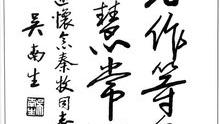 作等
慧常
懷念秦牧同志
吳南生